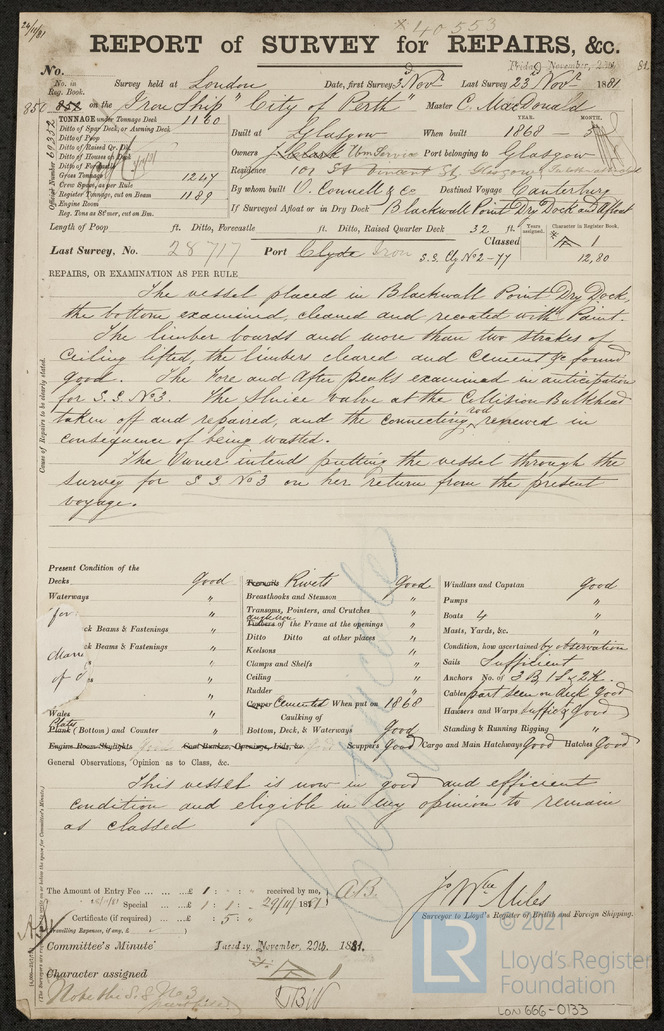 24/11/81
* 40553
REPORT of SURVEY for REPAIRS, &c.
Friday November, 25th 81.
No.
No. in Reg. Book. Survey held at London Date, first Survey 3d Novr Last Survey 23d Novr 1881
850 852 on the Iron Ship "City of Perth" Master C. MacDonald
Official Number 69332
TONNAGE under Tonnage Deck 1160
Ditto of Spar Deck, or Awning Deck
Ditto of Poop
Ditto of Raised Qr. Dk.
Ditto of Houses on Deck
Ditto of Forecastle
Gross Tonnage 1247
Crew Space, as per Rule
Register Tonnage, cut on Beam 1189
Engine Room
Reg. Tons as St'mer, cut on Bm.
YEAR. MONTH.
Built at Glasgow When built 1868 - 5
Owners J. Clark Port belonging to Glasgow
Residence 101 St Vincent St. Glasgow
By whom built C. Connell & Co Destined Voyage Canterbury
If Surveyed Afloat or in Dry Dock Blackwall Point Dry Dock and Afloat
Length of Poop ft. Ditto, Forecastle ft. Ditto, Raised Quarter Deck 32 ft.
Years assigned. Character in Register Book.
Last Survey, No. 28717 Port Clyde Iron S.S. Cly No 2-77 Classed A 1
12,80
REPAIRS, OR EXAMINATION AS PER RULE
Cause of Repairs to be clearly stated.
The vessel placed in Blackwall Point Dry Dock,
the bottom examined, cleaned and recoated with Paint.
The limber boards and more than two strakes of
Ceiling lifted, the limbers cleared and Cement &c found
good. The Fore and After peaks examined in anticipation
for S.S. No 3. The Sluice valve at the Collision Bulkhead
taken off and repaired, and the connecting rod renewed in
consequence of being wasted.
The Owner intend putting the vessel through the
survey for S.S. No 3 on her return from the present
voyage.
Present Condition of the
Decks Good
Waterways "
for
ck Beams & Fastenings "
ck Beams & Fastenings "
of
Wales "
Plates
Plank (Bottom) and Counter "
Engine Room Skylights Good Coal Bunker, Openings, Lids, &c. Good Scuppers Good Cargo and Main Hatchways Good Hatches Good
Treenails Rivets Good
Breasthooks and Stemson "
Transoms, Pointers, and Crutches "
Timbers of the Frame at the openings "
Ditto Ditto at other places "
Keelsons "
Clamps and Shelfs "
Ceiling "
Rudder "
Copper Cemented When put on 1868
Caulking of
Bottom, Deck, & Waterways Good
Windlass and Capstan Good
Pumps "
Boats 4 "
Masts, Yards, &c. "
Condition, how ascertained by observation
Sails Sufficient
Anchors No. of 3 B, 1 S & 2 K.
Cables part seen on deck Good
Hawsers and Warps suffict & Good
Standing & Running Rigging "
General Observations, Opinion as to Class, &c.
This vessel is now in good and efficient
condition and eligible in my opinion to remain
as classed
The Amount of Entry Fee ... ... ... £ 1 : - : received by me,
Special ... £ 1 : 1 : - 29/11/1881 A.B.
Certificate (if required) ... £ : 5 :
(Travelling Expenses, if any, £ )
Jo Wm Miles
Surveyor to Lloyd's Register of British and Foreign Shipping.
Committee's Minute Tuesday, November. 29th. 1881.
Character assigned A 1
Note the S.S No 3
© 2021
LR
Lloyd's Register
Foundation
LON666-0133